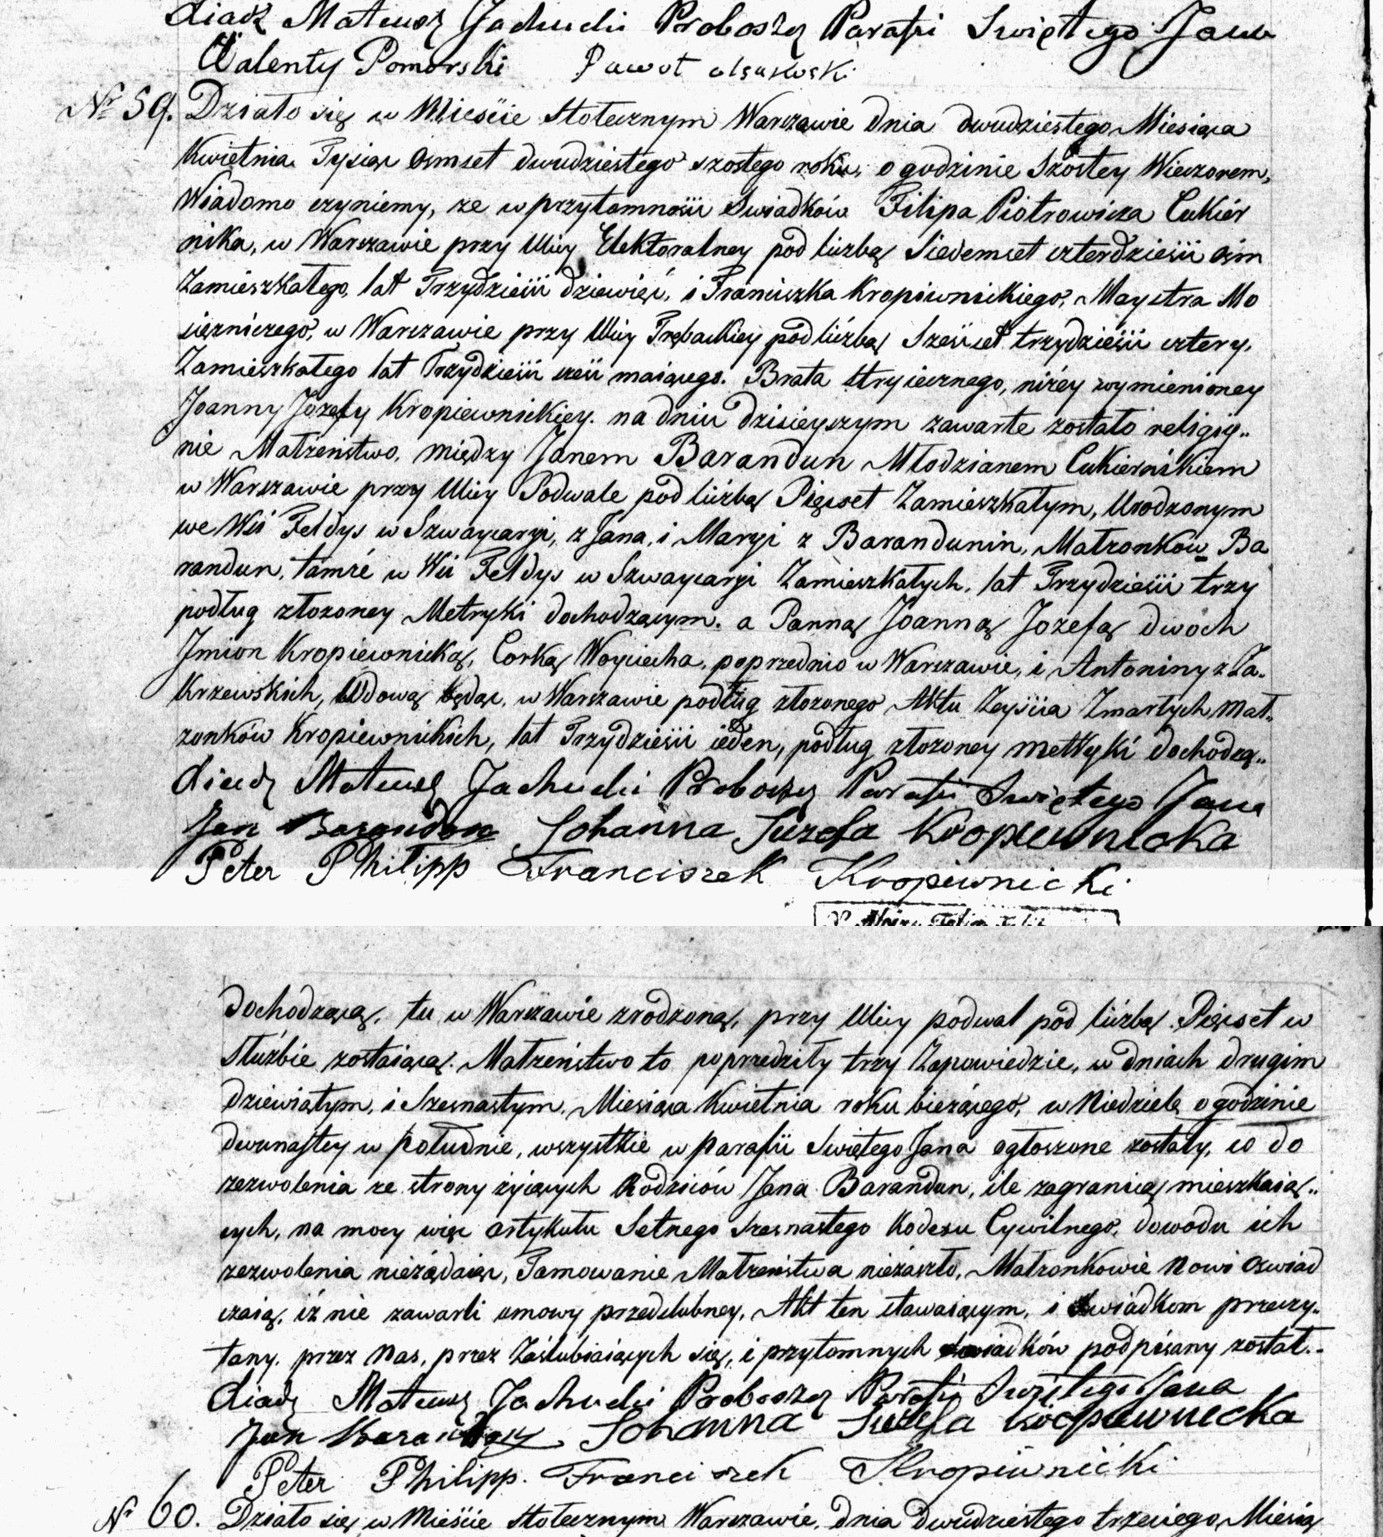 Xiądz Mateusz Jachucki Proboszcz Parafii Swiętego Jana
Walenty Pomorski Paweł
Nr 59. Działo się w Mieście Stołecznym Warszawie dnia dwudziestego Miesiąca
Kwietnia Tysiąc Osmset dwudziestego szostego roku, o godzinie Szostey Wieczorem,
Wiadomo czyniemy, ze w przytomności Swiadków Filipa Piotrowicza Cukier
nika, w Warszawie przy Ulicy Elektoralney pod liczbą Siedemset czterdzieści ośm
Zamieszkałego, lat Trzydzieści dziewięć, i Franciszka Kropiwnickiego, Maystra Mo
siężniczego, w Warszawie przy Ulicy Trębackiey pod liczbą Sześćset trzydzieści cztery,
Zamieszkałego lat Trzydzieści sześć maiącego. Brata stryiecznego, niżey wymienioney
Joanny Józefy Kropiewnickiey. na dniu dzisieyszym zawarte zostało religiy..
nie Małżeństwo, między Janem Barandun Młodzianem Cukiernikiem
w Warszawie przy Ulicy Podwale pod liczbą Pięćset Zamieszkałym, Urodzonym
we Wsi Feldys w Szwaycaryi, z Jana, i Maryi z Barandunin, Małżonków Ba
randun, tamże w Wsi Feldys w Szwaycaryi Zamieszkałych, lat Trzydzieści trzy
podług złożoney Metryki dochodzącym. a Panną Joanną Jozefą dwoch
Jmion Kropiewnicką, Corką Woyciecha, poprzednio w Warszawie, i Antoniny z Za.
Krzewskich, Wdową będąc, w Warszawie podług złożonego Aktu Zeyścia Zmarłych Mał.
żonków Kropiewnickich, lat Trzydzieści ieden, podług złożoney metryki dochodzą..
Xiądz Mateusz Jachucki Proboszcz Parafii Swiętego Jana
Jan Barandon Johanna Juzefa Kropiewnicka
Peter Philipp Franciszek Kropiwnicki
dochodzącą, tu w Warszawie zrodzoną, przy Ulicy podwal pod liczbą Pięćset w
Służbie zostaiącą. Małżeństwo to poprzedziły trzy Zapowiedzie, w dniach drugim
dziewiątym, i Szesnastym, Miesiąca Kwietnia roku bieżącego, w Niedzielę o godzinie
dwunastey w południe, wszystkie w parafii Swiętego Jana ogłoszone zostały, co do
zezwolenia ze strony żyiących Rodziców Jana Barandun, ile zagranicą mieszkaią..
cych, na mocy więc artykułu Setnego Szesnastego Kodexu Cywilnego, dowodu ich
zezwolenia nieżądaiąc, Tamowanie Małżeństwa niezaszło, Małżonkowie Nowi Oświad
czaią, iż nie zawarli umowy przedslubney, Akt ten stawaiącym, i Swiadkom przeczy.
tany, przez Nas, przez Zaślubiaiących się, i przytomnych Swiadków podpisany został..
Xiądz Mateusz Jachucki Proboszcz Parafii Swiętego Jana
Jan Barandon Johanna Juzefa Kropiewnicka
Peter Philipp. Franciszek Kropiwnicki
Nr 60. Działo się w Mieście Stołecznym Warszawie, dnia dwudziestego trzeciego Miesią